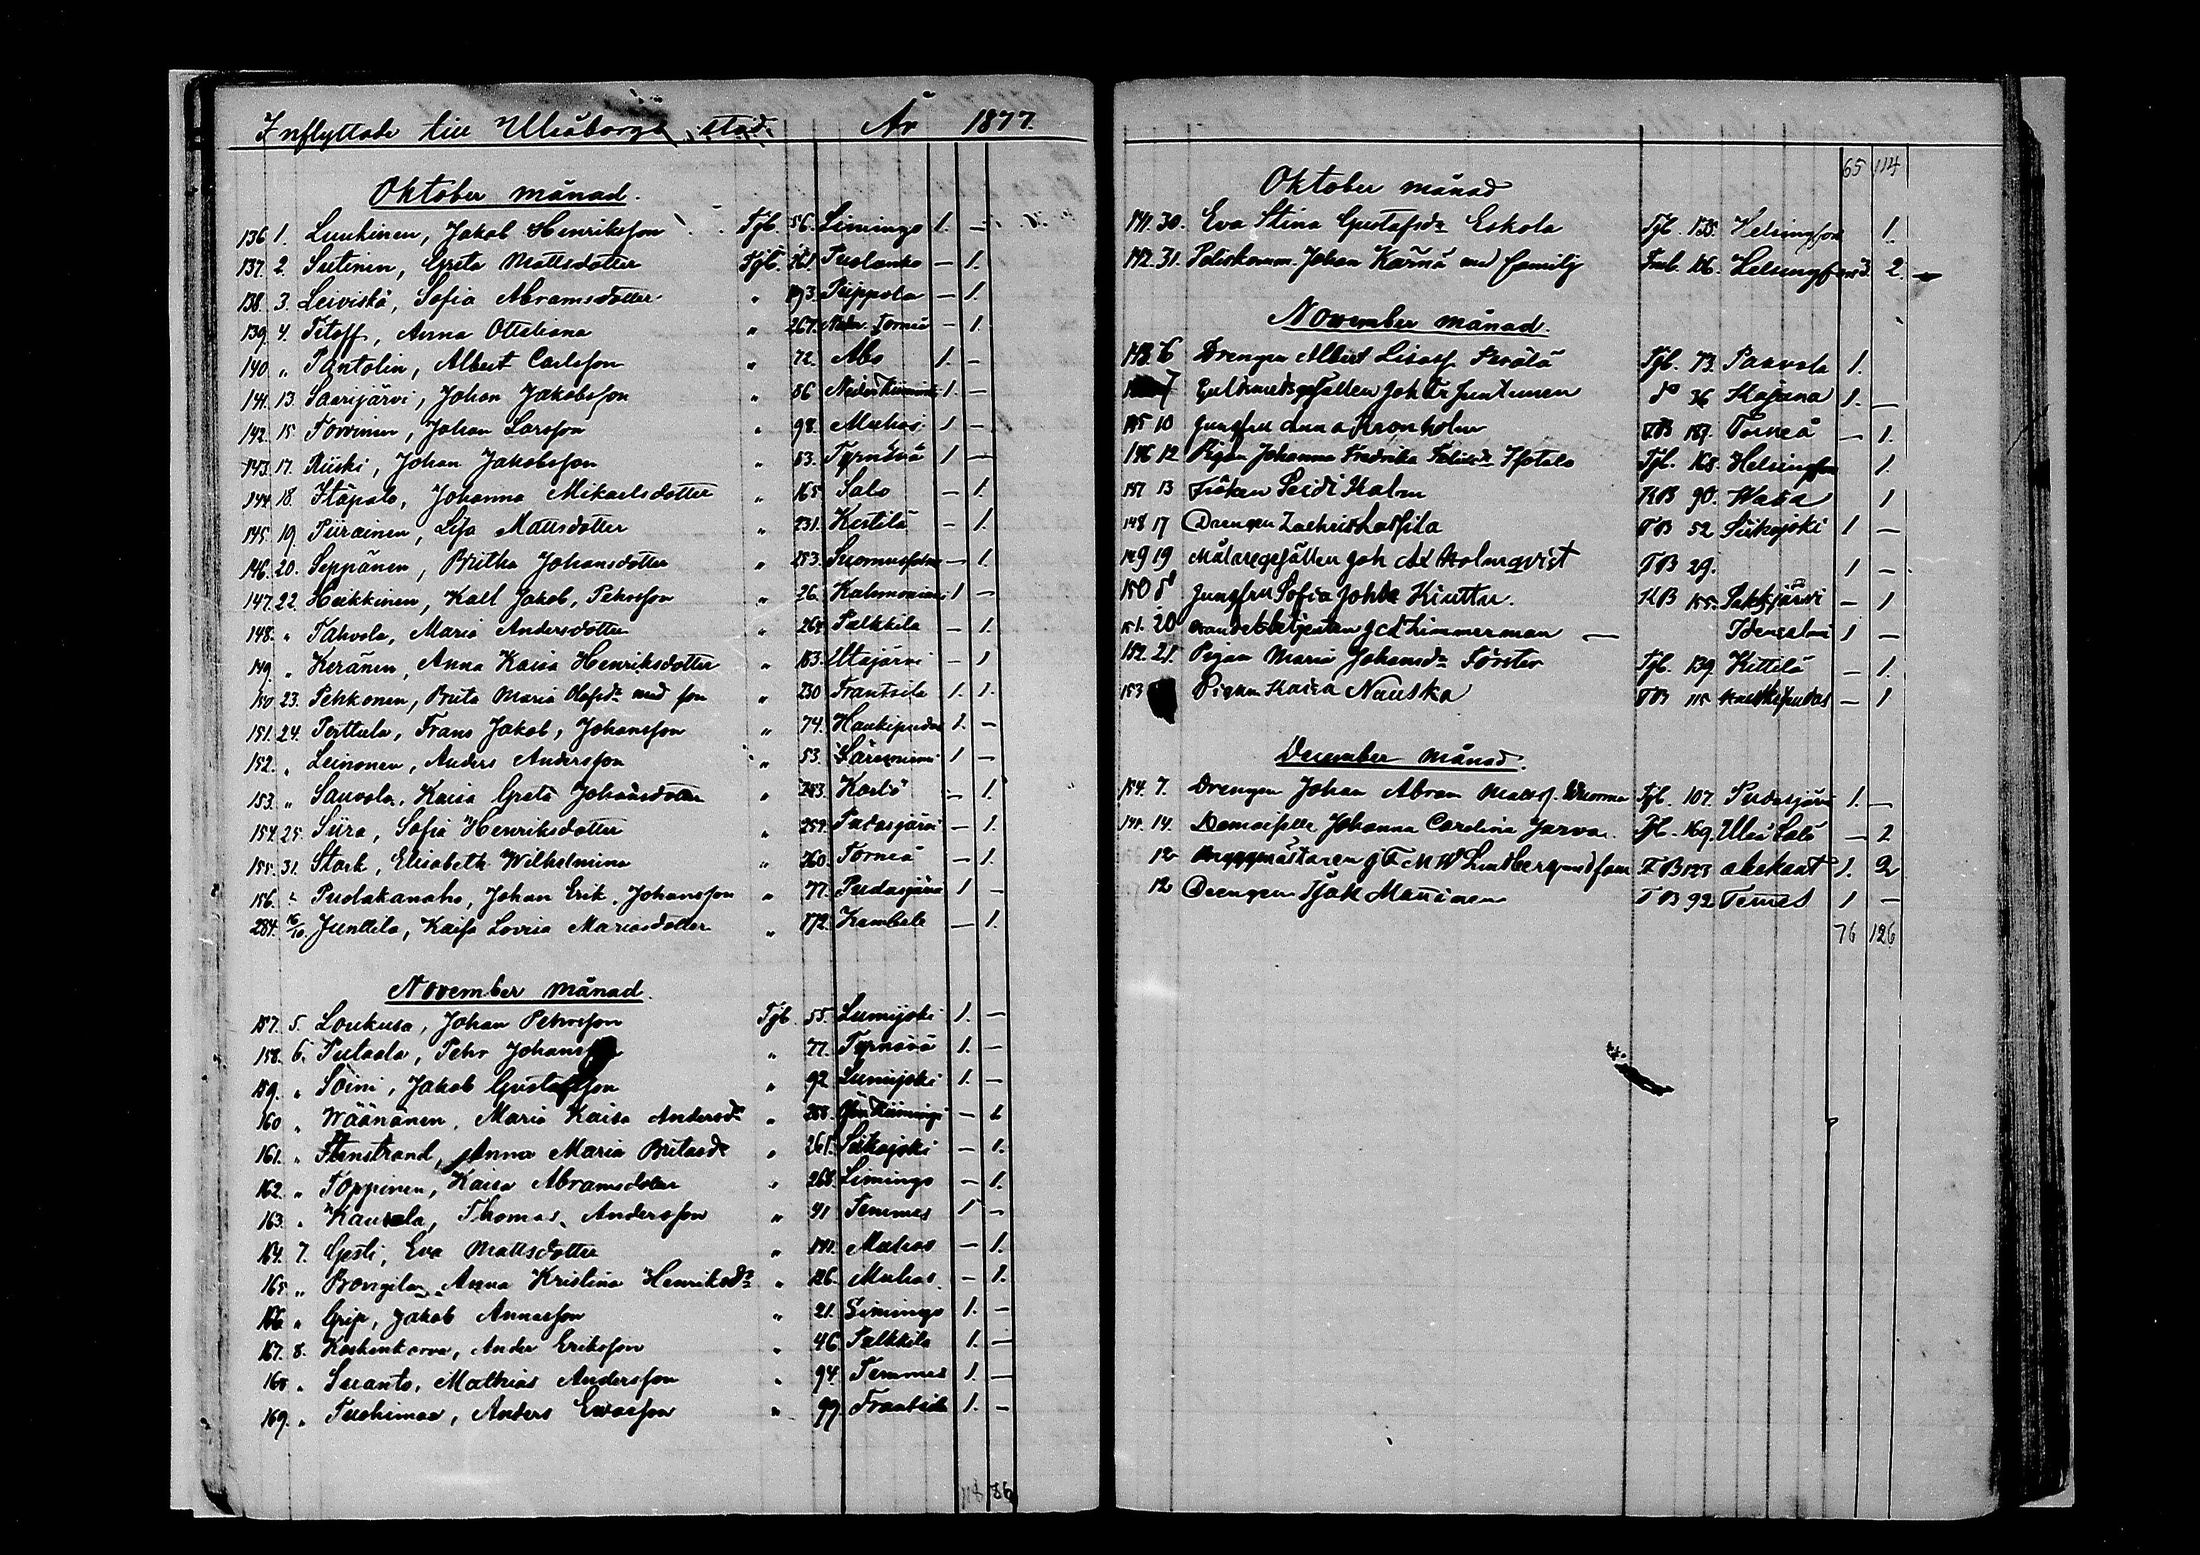 Inflyttade till Uleåborgs stad. År 1877.
Oktober månad.
136. 1. Luukinen, Jakob Henriksson Tjb. 56. Limingo 1. —
137. 2. Sutinen, Greta Mattsdotter Tjb. 261. Puolanko — 1.
138. 3. Leiviskä, Sofia Abramsdotter " 193. Piippola — 1.
139. 4. Titoff, Anna Ottiliana " 267. Neder Torneå — 1.
140. " Pantolin, Albert Carlsson " 72. Åbo 1. —
141. 13. Saarijärvi, Johan Jakobsson " 86 Neder Kiiminki 1. —
142. 15. Torvinen, Johan Larsson " 98. Muhos 1 —
143. 17. Riiski, Johan Jakobsson " 83. Tyrnävä 1 —
144. 18. Itäpalo, Johanna Mikaelsdotter " 165 Salo — 1.
145. 19. Piirainen, Lisa Mattsdotter " 231. Kestilä — 1.
146. 20. Seppänen, Britha Johansdotter " 253. Suomussalmi — 1.
147. 22. Heikkinen, Karl Jakob, Pehrsson " 26. 1 —
148. " Tahvola, Maria Andersdotter " 264 Pulkkila — 1.
149. " Keränen, Anna Kaisa Henriksdotter " 183. Utajärvi — 1
150 23. Pehkonen, Brita Maria Olofsdr med son " 230 Frantsila 1. 1.
151. 24. Perttula, Frans Jakob, Johansson " 74. Haukipudas 1. —
152. " Leinonen, Anders Andersson " 53. Säresniemi 1 —
153. " Sauvola, Kaisa Greta Johansdotter " 243. Karlö — 1.
154. 25. Siira, Sofia Henriksdotter " 259. Pudasjärvi — 1.
155. 31. Stark, Elisabeth Wilhelmina " 260. Torneå — 1.
156. " Pudakanaho, Johan Erik, Johansson " 77. Pudasjärvi 1 —
284. 16/10. Junttila, Kaisa Lovisa Mariasdotter " 172. Kembele — 1.
November månad.
157. 5. Loukusa, Johan Pehrsson Tjb. 55. Lumijoki 1. —
158. 6. Putaala, Pehr Johansson " 77. Tyrnävä 1. —
159. " Soini, Jakob Gustafsson " 92 Lumijoki 1. —
160 " Wäänänen, Maria Kaisa Andersdr " 288. Öfver Kiiminge — 1
161. " Stenstrand, Anna Maria Britasdr " 261. Siikajoki — 1.
162. " Toppinen, Kaisa Abramsdotter " 268. Limingo — 1.
163. " Kauvala, Thomas, Andersson " 41 Temmes 1 —
164. 7. Gesti, Eva Mattsdotter " 141. Muhos — 1.
165. " Anna Kristina Henriksdr " 126. Muhos — 1.
166 " Grip, Jakob Annasson " 21. Limingo 1. —
167. 8. Koskenkorva, Ander Eriksson " 46 Pulkkila 1. —
168 " Suanto, Mathias Andersson " 94. Temmes 1. —
169. " Tuohimaa, Anders Ewasson " 99 Frantsila 1. —
118 86
65 114
Oktober månad
141. 30. Eva Stina Gustafsdr Eskola Tjb. 135. Helsingfors 1.
142. 31. Poliskomm. Johan Karnä med familj Fmb. 106. Helsingfors 3. 2. —
November månad.
143 6 Drengen Albert Lisass. Perälä Tjb. 73. Paavola 1.
7 Guldsmedsgesällen Joh Er Juntunen do 36 Kajana 1. —
145 10 Jungfru Anna Kronholm TB 187. Torneå — 1.
146 12 Pigan Johanna Fredrika Hotelo Tjb. 168. Helsingfors 1.
147 13 Fröken Seidi Kalm KB 90. Wasa 1
148 17 Drengen Zachris Lassila TB 52 Siikajoki 1 —
149 19 Målaregesällen Joh Ad Holmqvist TB 29. 1 —
150 8 Jungfru Sofia Johda KB 155. — 1
151. 20 Handelsbetjenten J Ad Zimmerman — Idensalmi 1 —
152. 21. Pigan Maria Johansdr Förster Tjb. 139. Kittilä — 1.
153 Pigan Kaisa Nauska TB 115 Haukipudas — 1
December månad.
154. 7. Drengen Johan Abram Mattss. Wuorma Tjb. 107. Pudasjärvi 1. —
14. Demoiselle Johanna Carolina Jarva. Tjb. 169. Uleå Salo — 2
12 Byggmästaren J F M W Lindberg med fam FB 123 obekant 1. 2
12 Drengen Isak Manninen TB 92 Temes 1 —
76 126